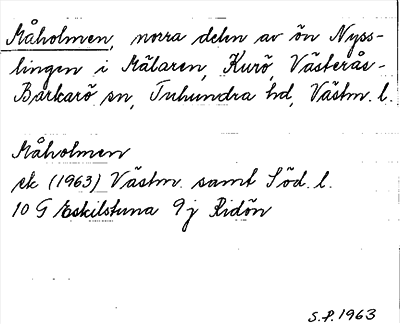 Måholmen, norra delen av ön Nyss-
lingen i Mälaren, Kurö, Västerås-
Barkarö sn, Tuhundra hd, Västm. l.
Måholmen
ek (1963) Västm. samt Söd. l.
10 G Eskilstuna 9 j Ridön
S.P. 1963